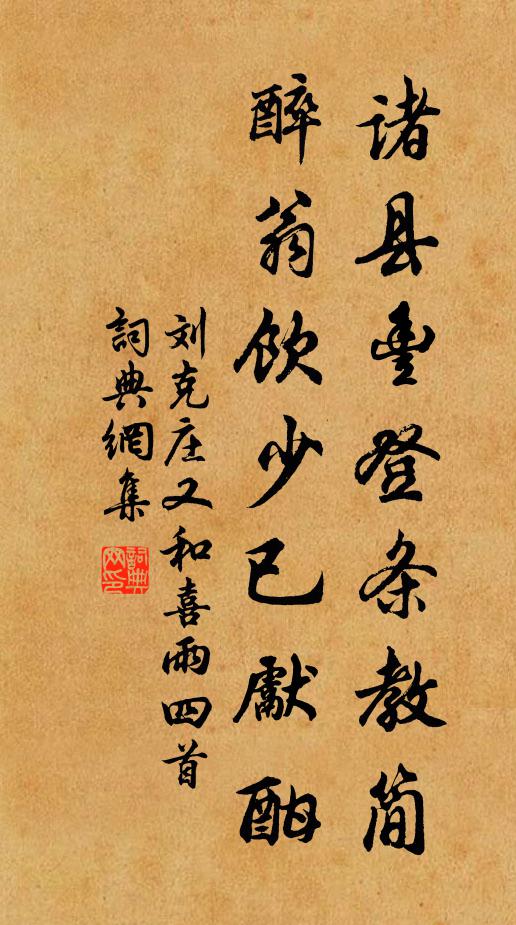 诸县豊登条教简
醉翁饮少已献酣
刘克庄又和喜雨四首
詞典網集
詞典網印